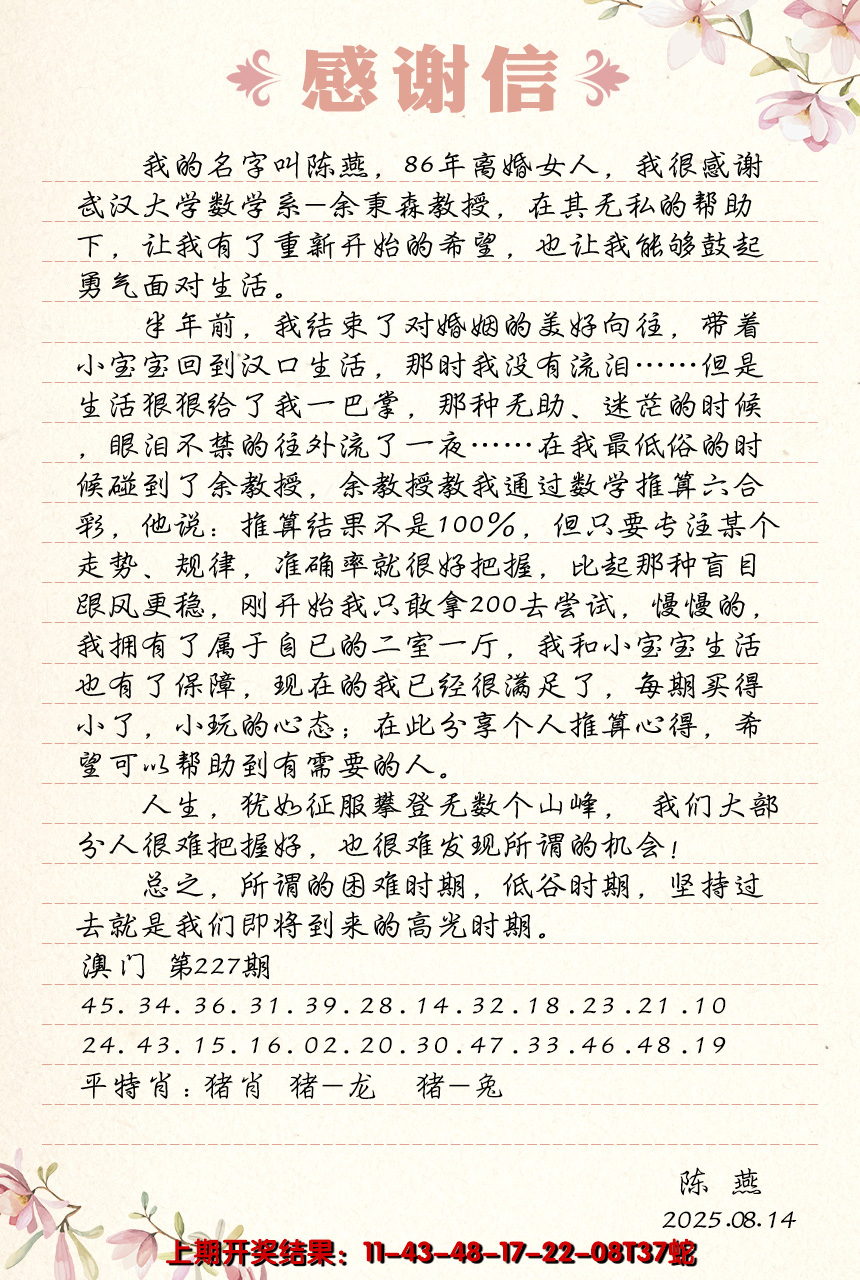 感谢信
我的名字叫陈燕，86年离婚女人，我很感谢
武汉大学数学系—余秉森教授，在其无私的帮助
下，让我有了重新开始的希望，也让我能够鼓起
勇气面对生活。
半年前，我结束了对婚姻的美好向往，带着
小宝宝回到汉口生活，那时我没有流泪……但是
生活狠狠给了我一巴掌，那种无助、迷茫的时候
，眼泪不禁的往外流了一夜……在我最低俗的时
候碰到了余教授，余教授教我通过数学推算六合
彩，他说：推算结果不是100%，但只要专注某个
走势、规律，准确率就很好把握，比起那种盲目
跟风更稳，刚开始我只敢拿200去尝试，慢慢的，
我拥有了属于自已的二室一厅，我和小宝宝生活
也有了保障，现在的我已经很满足了，每期买得
小了，小玩的心态；在此分享个人推算心得，希
望可以帮助到有需要的人。
人生，犹如征服攀登无数个山峰， 我们大部
分人很难把握好，也很难发现所谓的机会！
总之，所谓的困难时期，低谷时期，坚持过
去就是我们即将到来的高光时期。
澳门 第227期
45.34.36.31.39.28.14.32.18.23.21.10
24.43.15.16.02.20.30.47.33.46.48.19
平特肖：猪肖 猪—龙 猪—兔
陈 燕
2025.08.14
上期开奖结果：11-43-48-17-22-08T37蛇